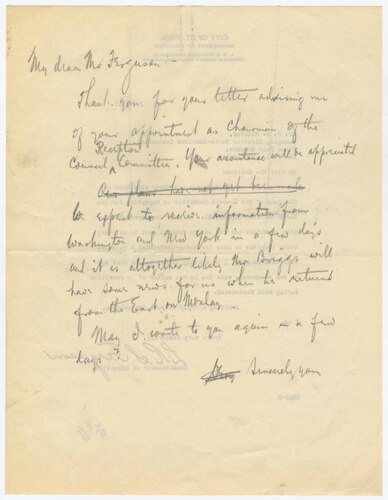 My dear Mr Ferguson
Thank you for your letter advising me
of your appointment as Chairman of the
Reception
Council Committee. Your assistance will be appreciated
Our plans have not yet been made
We expect to receive information from
Washington and New York in a few days
and it is altogether likely Mr Briggs will
have some news for us when he returns
from the East on Monday.
May I write to you again in a few
days?
Sincerely your